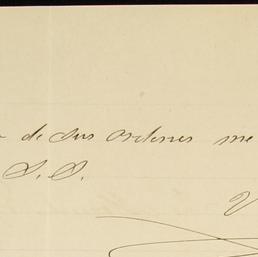 de sus ordenes me
S. S.